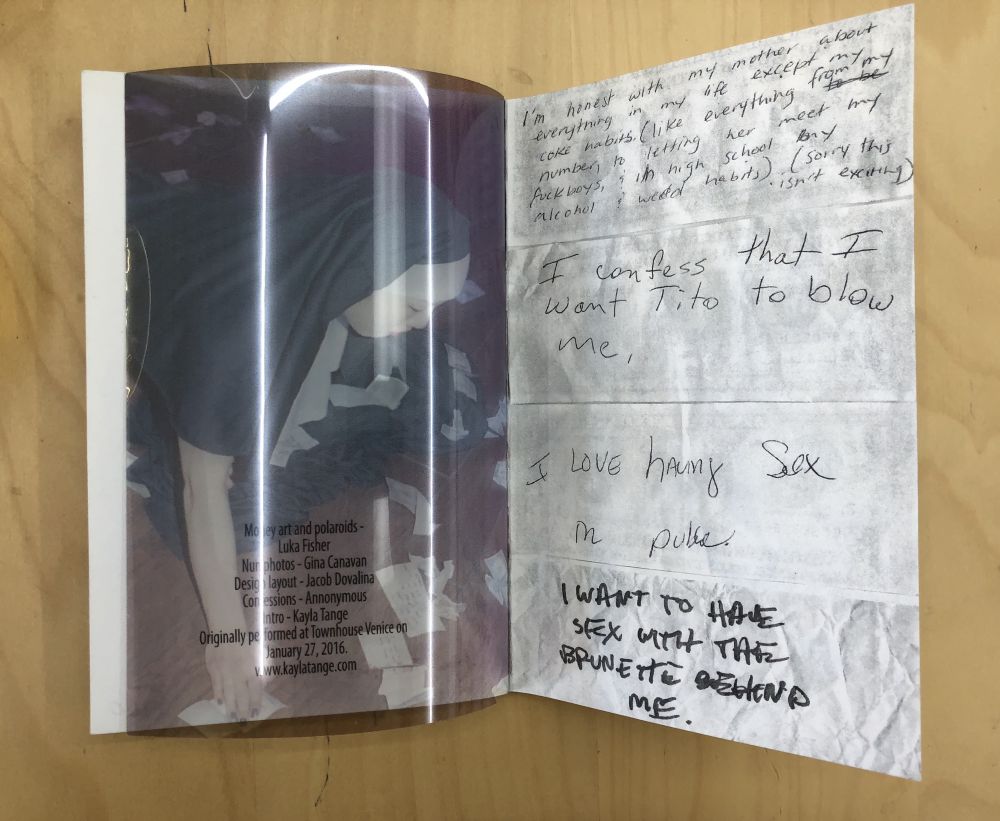 Money art and polaroids -
Luka Fisher
Nun photos - Gina Canavan
Design layout - Jacob Dovalina
Confessions - Annonymous
Intro - Kayla Tange
Originally performed at Townhouse Venice on
January 27, 2016.
www.kaylatange.com
I'm honest with my mother about
everything in my life except my
coke habits. (like everything from my
number, to letting her meet my
fuckboys, & in high school my
alcohol & weed habits) (sorry this
isn't exciting)
I confess that I
want Tito to blow
me,
I LOVE having Sex
in
I WANT TO HAVE
SEX WITH THE
BRUNETTE BEHIND
ME.